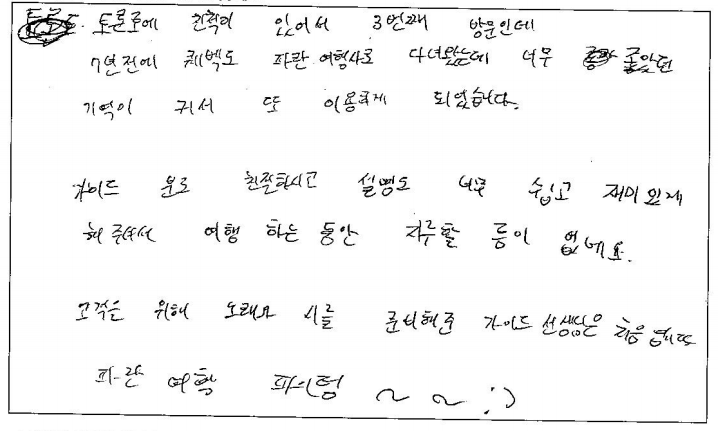 토론토에 친척이 있어서 3번째 방문인데
7년전에 퀘벡도 파란 여행사로 다녀왔는데 너무 좋았던
기억이 커서 또 이용하게 되었습니다.
가이드 분도 친절하시고 설명도 너무 쉽고 재미있게
해주셔서 여행 하는 동안 지루할 틈이 없네요.
고객을 위해 노래와 시를 준비해준 가이드 선생님은 처음 봅니다
파란 여행 파이팅 ~ ~ :)